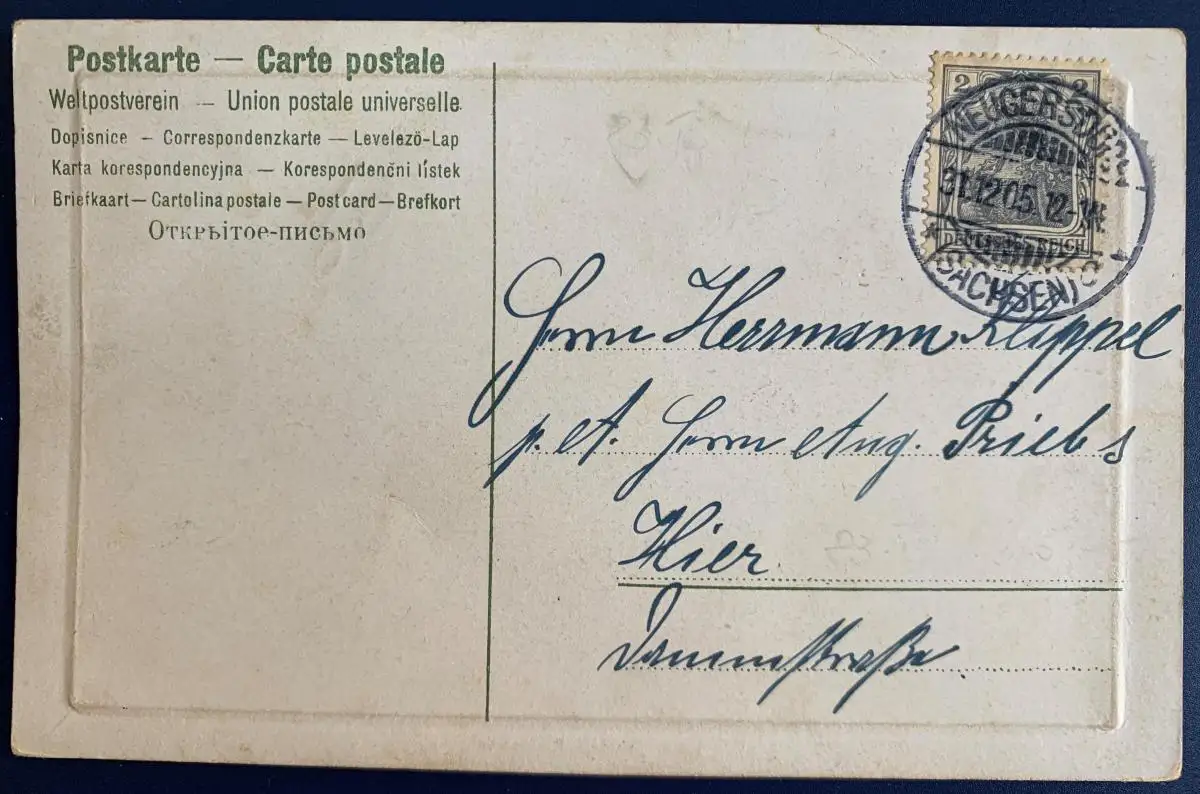 Postkarte — Carte postale
Weltpostverein — Union postale universelle.
Dopisnice — Correspondenzkarte — Levelezö-Lap
Karta korespondencyjna — Korespondenčni lístek
Briefkaart — Cartolina postale — Post card — Brefkort
Открьітое-письмо
2 2
DEUTSCHES REICH
NEUGERSDORF
31.12.05. 12-1N.
* (SACHSEN) C
Herrn Herrmann Klippel
p. A. Herrn Aug. Priebs
Hier
Dammstraße